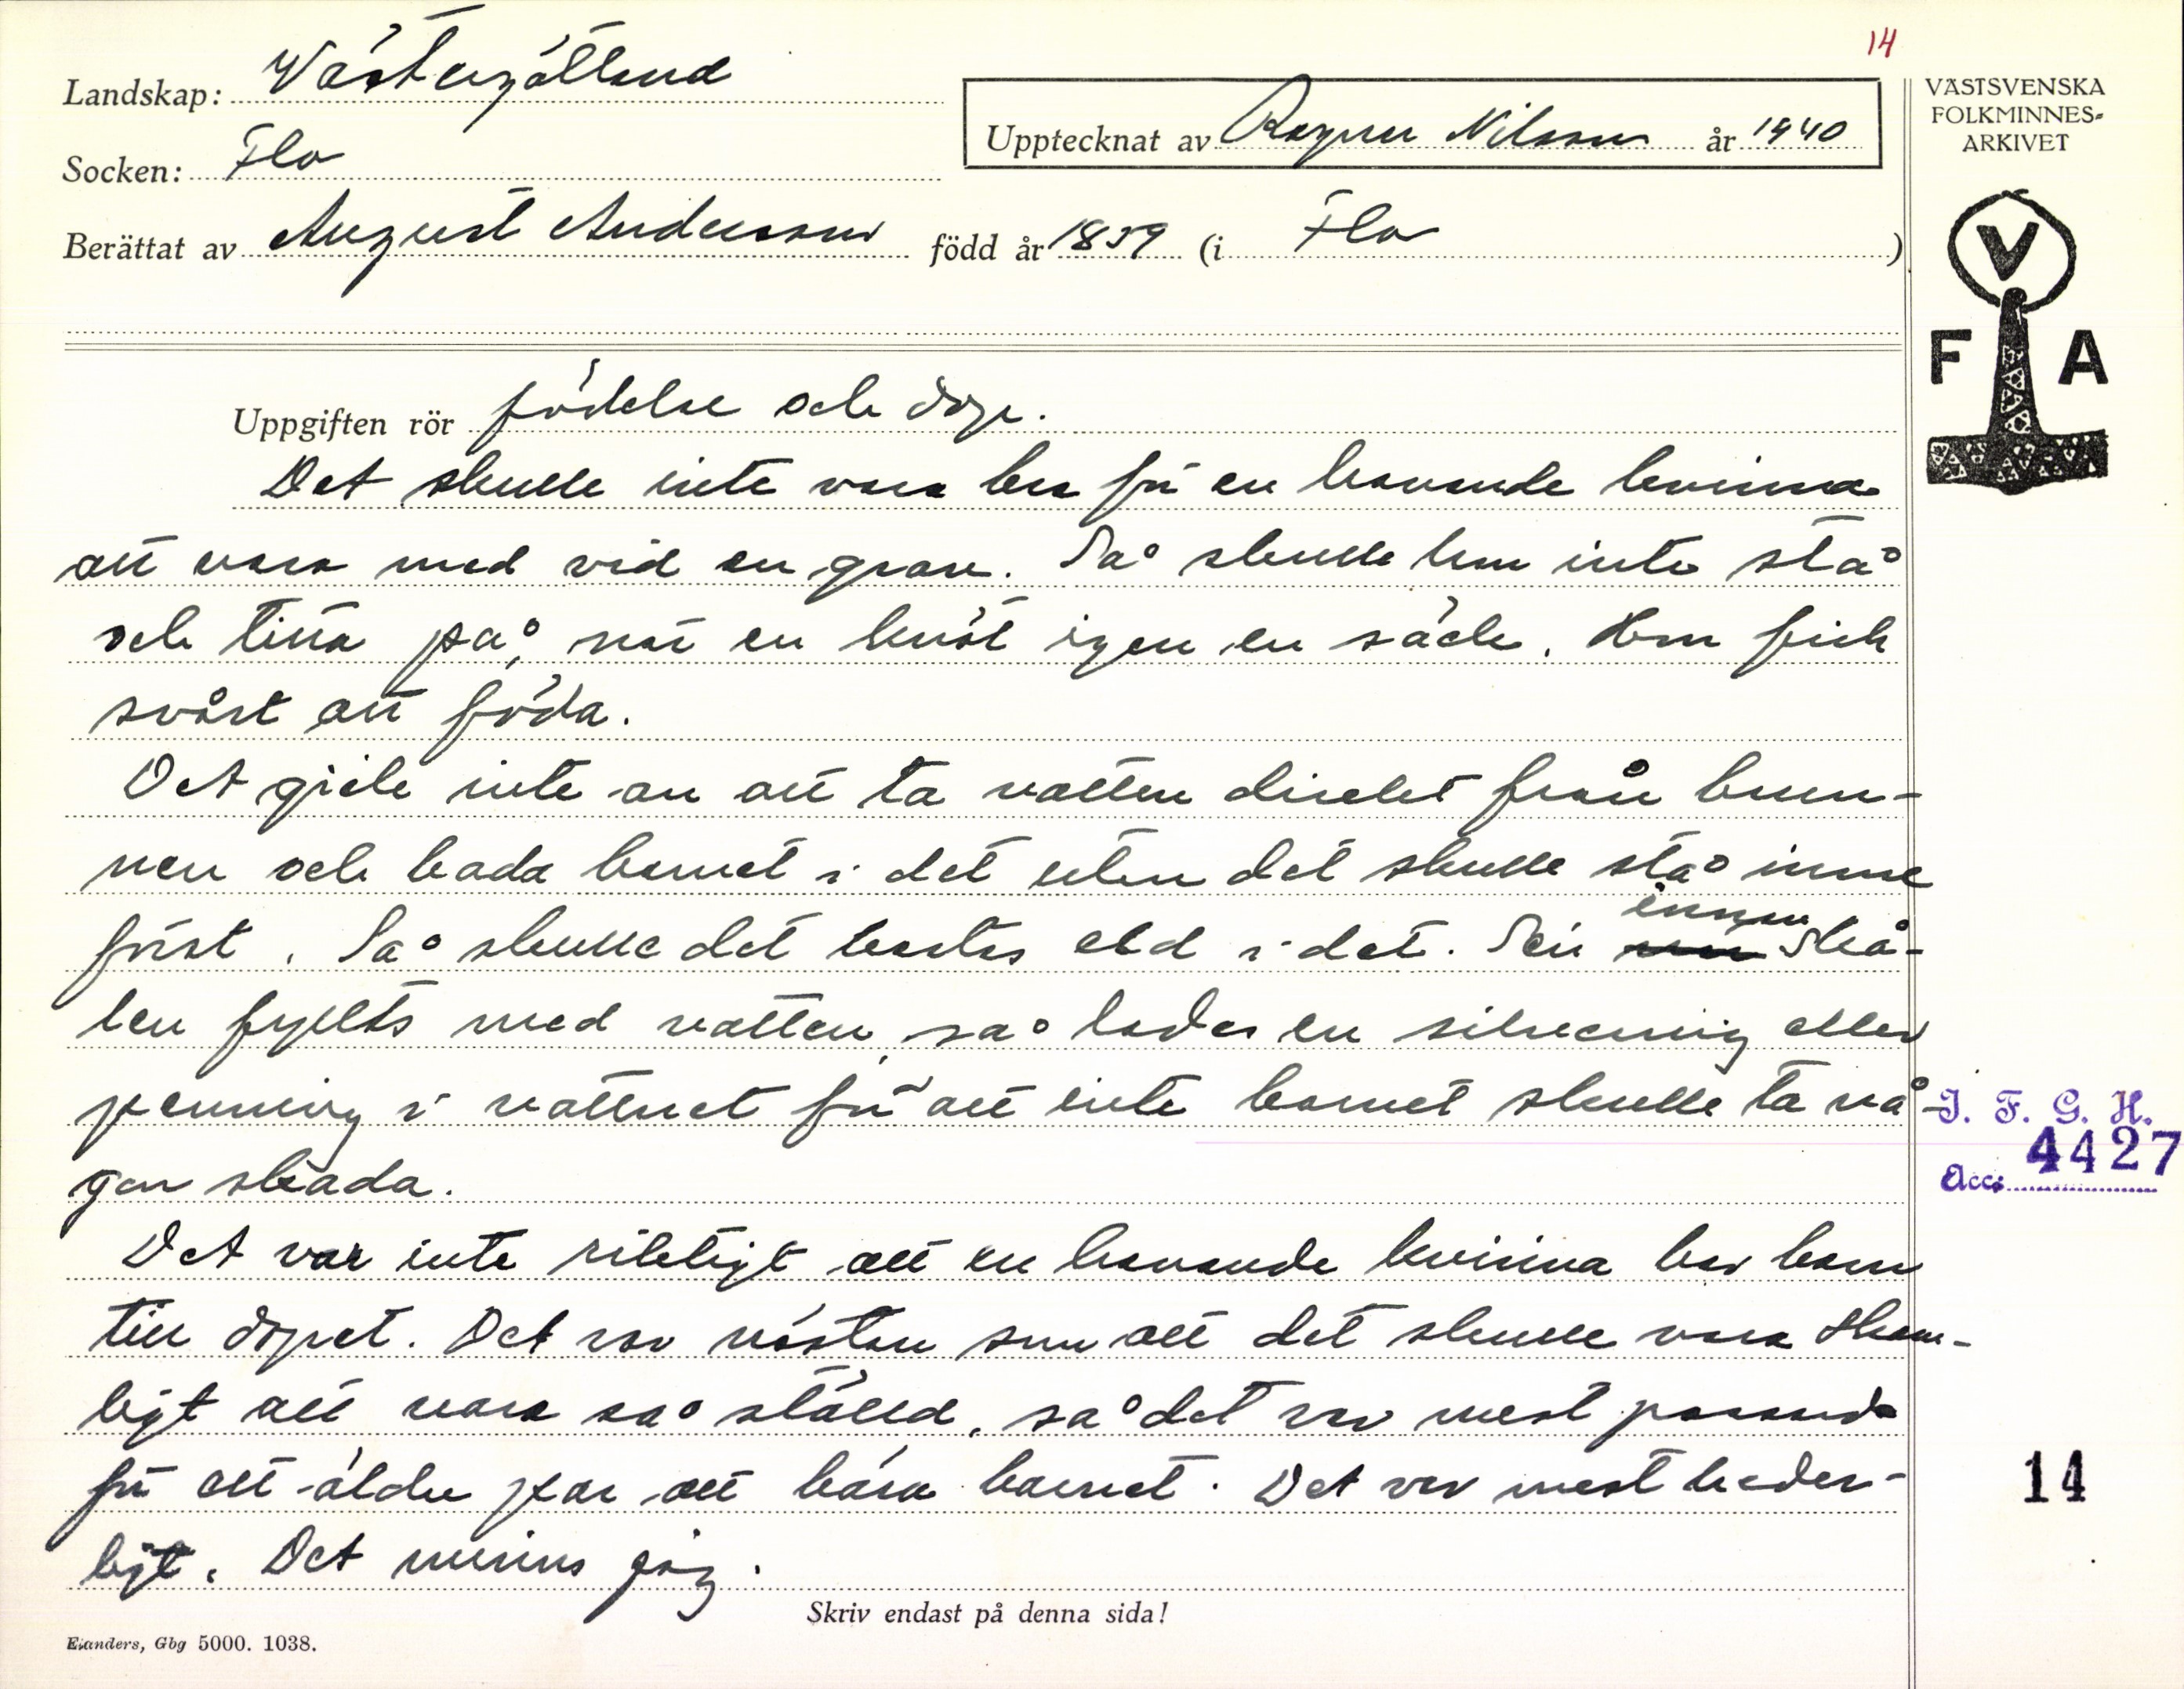 14
Landskap: Västergötland
Socken: Flo
Upptecknat av Ragnar Nilsson år 1940
Berättat av August Andersson född år 1859 (i Flo)
VÄSTSVENSKA
FOLKMINNES-
ARKIVET
V
F A
Uppgiften rör födelse och dop.
Det skulle inte vara bra för en havande kvinna
att vara med vid en grav. Så skulle hon inte stå
och titta på, när en knöt igen en säck. Hon fick
svårt att föda.
Det gick inte an att ta vatten direkt från brun-
nen och bada barnet i det utan det skulle stå inne
först. Så skulle det kastas eld i det. Sen innan skå-
len fyllts med vatten, så lades en silverring eller
penning i vattnet för att inte barnet skulle ta nå-
gon skada.
Det var inte riktigt att en havande kvinna bar barn
till dopet. Det var nästan som att det skulle vara skam-
ligt att vara så ställd, så det var mest passande
för ett äldre par att bära barnet. Det var mest heder-
ligt. Det minns jag.
I. F. G. H.
Acc: 4427
14
Skriv endast på denna sida!
Elanders, Gbg 5000. 1038.